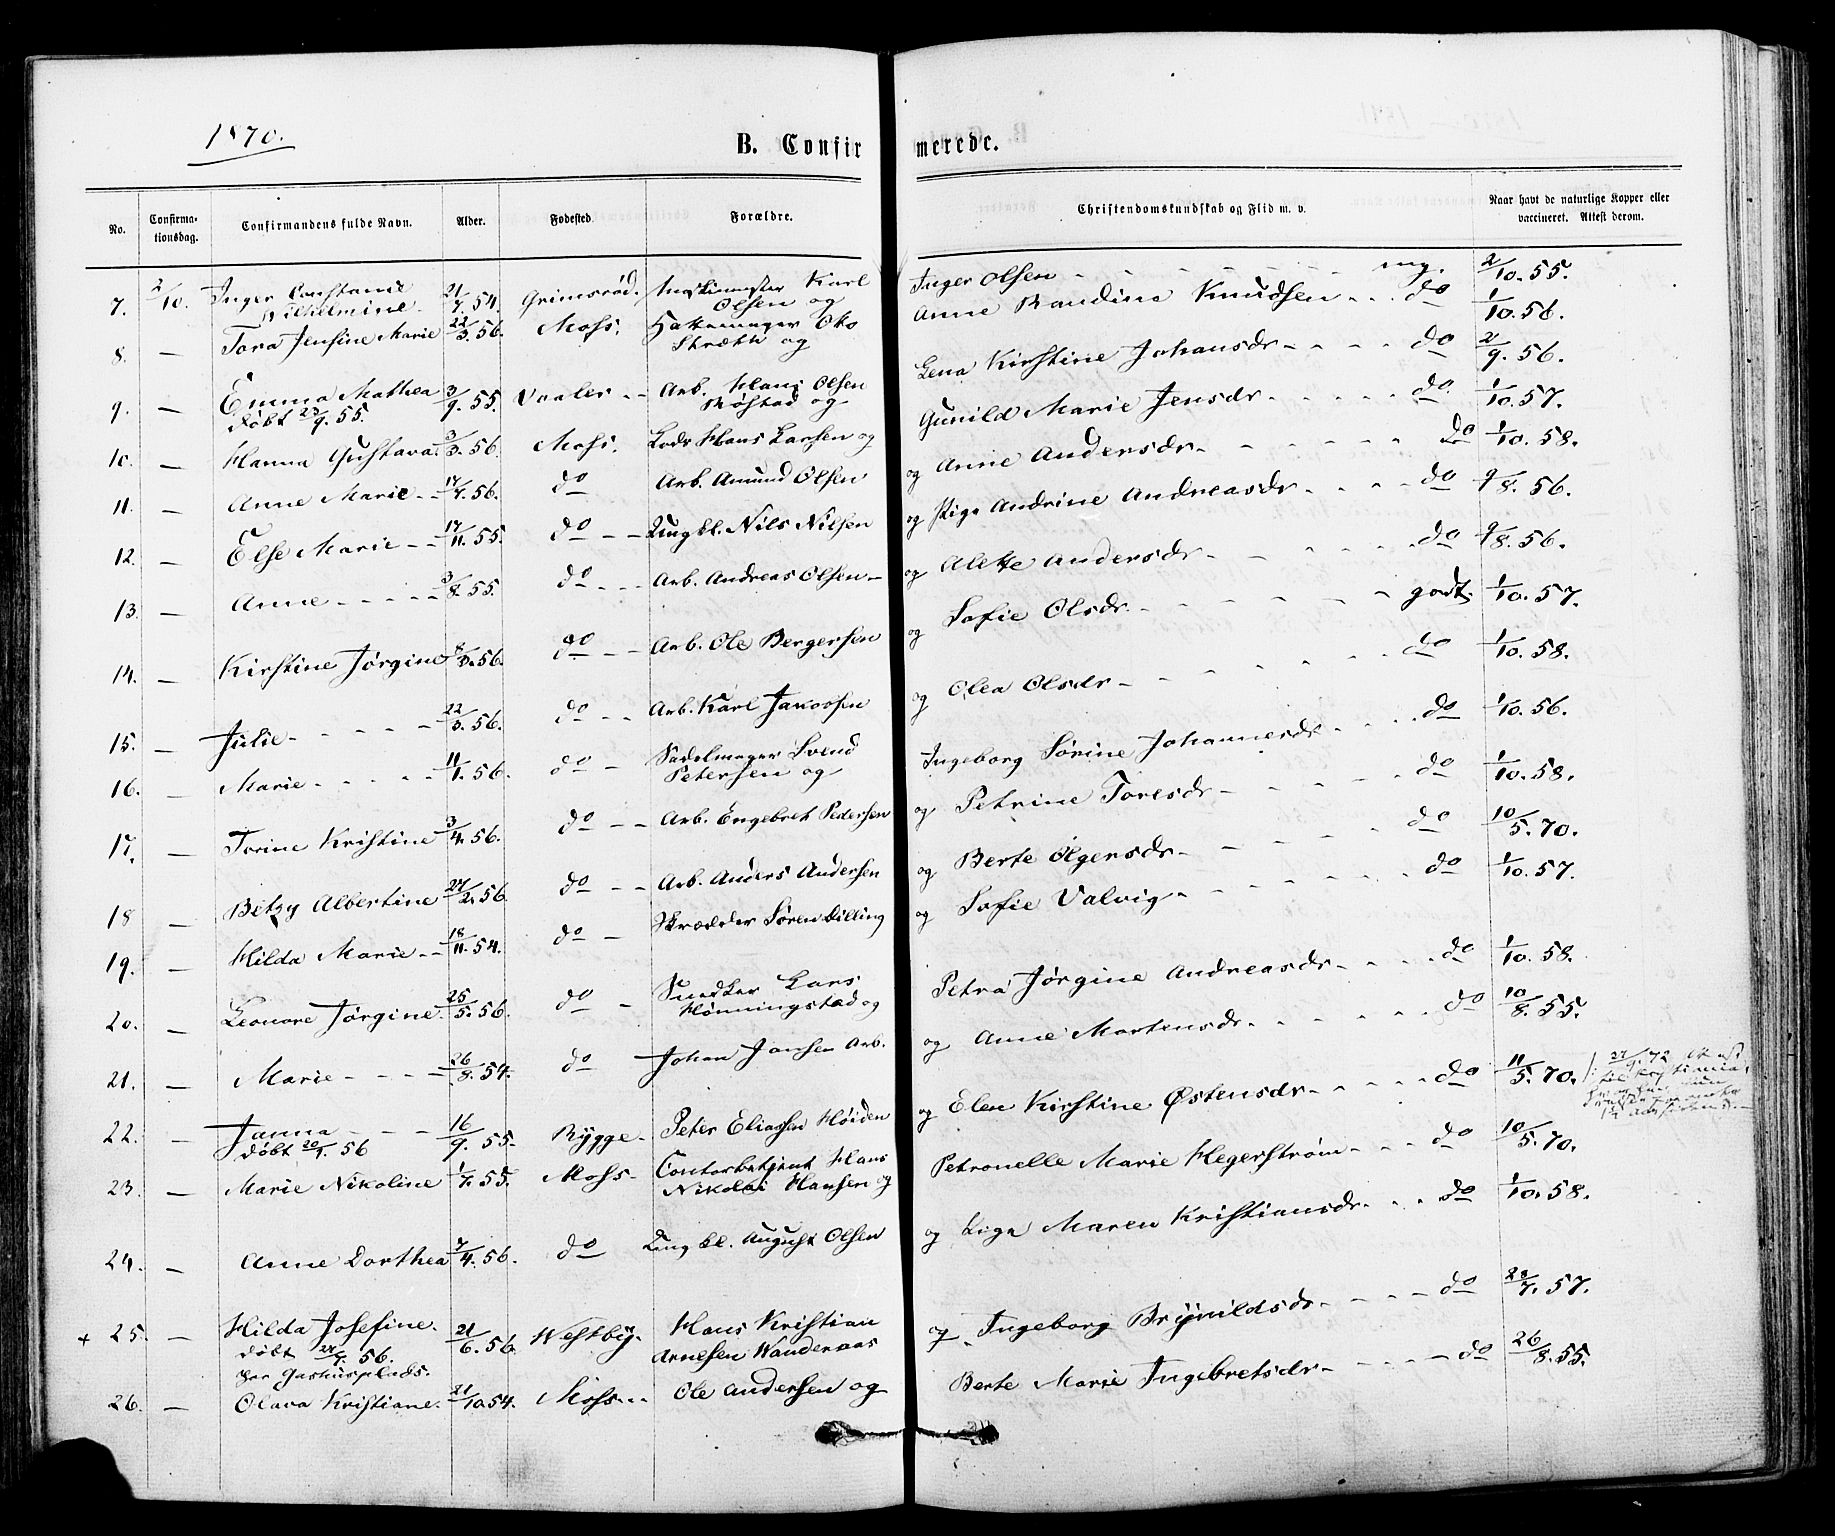 1870.
B. Confir merede.
No. Confirma-tionsdag. Confirmandens fulde Navn. Alder. Fødested. Forældre. Christendomskundskab og Flid m. v. Naar havt de naturlige Kopper eller vaccineret. Attest derom.
7. 2/10. Inger Constance 21/7.54. Grimsrød. Karl Inger Olsen - - - mg. 2/10.55.
Wilhelmine. Olsen og
8. — Tora Jensine Marie 22/3.56. Moss. Hattemager Anne Bandine Knudsen - - do 1/10.56.
Stræth og
9. — Emma Mathea 3/9.55. Vaaler - - Arb. Hans Olsen Lena Kirstine Johansdr - - - - do 2/9.56.
døbt 23/9.55. Røstad og
10. — Hanna Gustava 3/3.56. Moss. Lods Hans Larsen og Gunild Marie Jensdr - - - - - do 1/10.57.
11. — Anne Marie - - 17/7.56. do Arb. Amund Olsen og Anne Andersdr - - - - - do 1/10.58.
12. — Else Marie - - 17/11.55. do - - Ungkl. Nils Nilsen og Pige Andrine Andreasdr - - - - do 9/8.56.
13. — Anne - - - - 3/8.55. do - - - Arb. Andreas Olsen - og Alette Andersdr - - - - do 9/8.56.
14. — Kirstine Jørgine 8/3.56. do - - Arb. Ole Bergersen og Sofie Olsdr. - - - - - godt. 1/10.57.
15. — Julie - - - - - 22/3.56. do - - Arb. Karl Jakobsen og Olea Olsdr - - - - - do 1/10.58.
16. — Marie - - - - 11/1.56. do - Sadelmager Svend Ingeborg Sørine Johannesdr - - - - do 1/10.56.
Petersen og
17. — Torine Kristine 3/4.56. do - - Arb. Engebret Pedersen og Petrine Toresdr - - - - - do 1/10.58.
18 — Betzy Albertine 27/2.56 do - - Arb. Anders Andersen og Berte Olgersdr - - - - do 10/5.70.
19. — Hilda Marie - - 18/11.54. do - Skrædder Søren Dilling og Sofie Valvig - - - - - do 1/10.57.
20. — Leonore Jørgine. 25/5.56. do - Snedker Lars Petra Jørgine Andreasdr - - - - do 1/10.58.
Hønningstad og
21. — Marie - - - - 26/8.54. do Johan Jansen Arb. og Anne Mortensdr. - - - - - do 10/8.55.
22. — Janna - - - 16/9.55. Rygge - Peter Eliassen Høiden og Elen Kirstine Østensdr - - - - do 11/5.70.
døbt 20/1.56
27/9 72 Att ud
til Kristiania,
23. — Marie Nikoline 1/7.55. Moss - Contorbetjent Hans Petronelle Marie Hegerstrøm - - - do 10/5.70.
Nikolai Hansen og
24. — Anne Dorthea 7/4.56. do Ungkl. August Olsen og Pige Maren Kristiansdr. - - - do 1/10.58.
+ 25. — Hilda Josefine. 21/6.56. Westby - Hans Kristian og Ingeborg Brynildsdr - - - - do 28/7.57.
døbt 27/7.56. Arnesen Wandernaas
26. — Olava Kristiane. 21/10.54. Moss - - Ole Andersen og Berte Marie Ingebretsdr - - - - do 26/8.55.